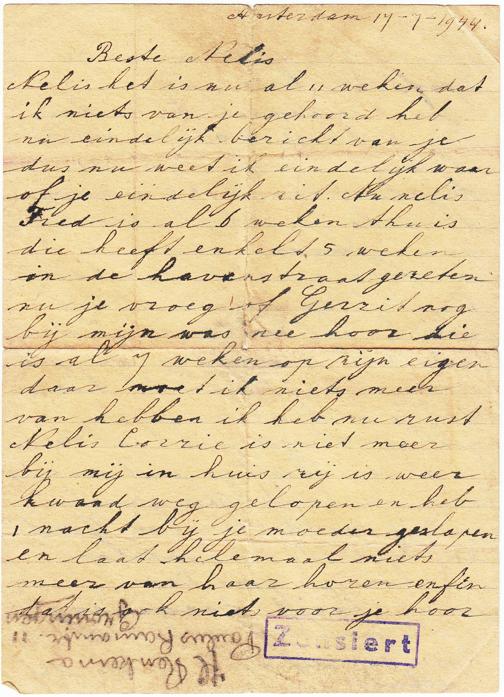 Amsterdam 17-7-1944.
Beste Nelis
Nelis het is nu al 11 weken dat
ik niets van je gehoord heb
nu eindelijk bericht van je
dus nu weet ik eindelijk waar
of je eindelijk sit. Nu nelis
Fred is al 6 weken thuis
die heeft enkelt 5 weken
in de havenstraat gezeten
nu je vroeg of Gerrit nog
bij mijn was nee hoor die
is al 7 weken op zijn eigen
daar moet ik niets meer
van hebben ik heb nu rust
Nelis Corrie is niet meer
bij mij in huis zij is weer
kwaad weg gelopen en heb
1 nacht bij je moeder geslapen
en laat helemaal niets
meer van haar horen enfin
ook niet voor je hoor
Zensiert
H Renkema
Paulus 11
Groningen